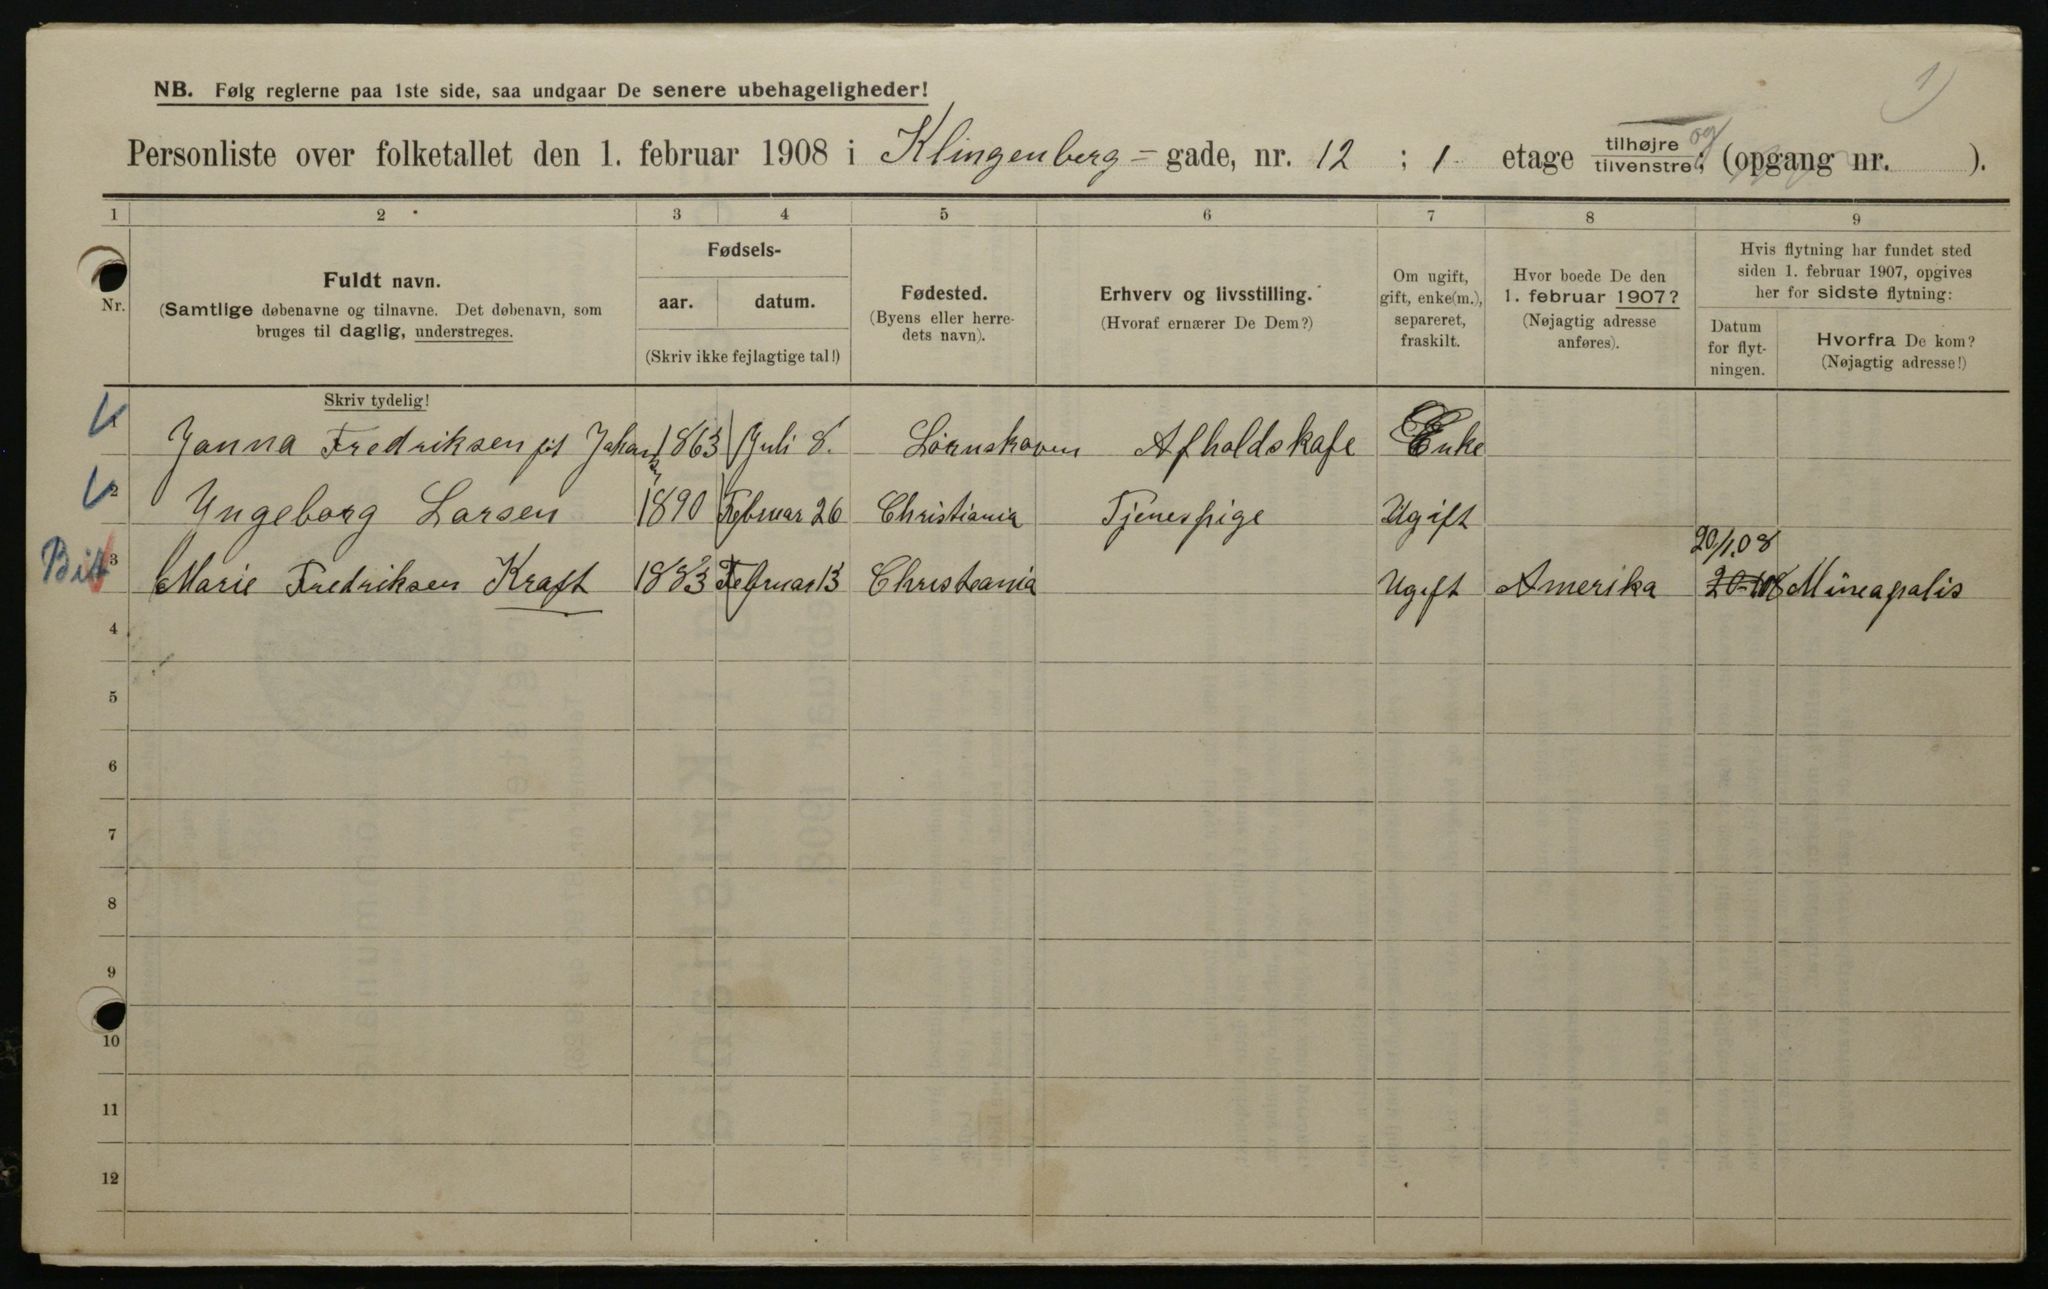 1)
NB. Følg reglerne paa 1ste side, saa undgaar De senere ubehageligheder!
Personliste over folketallet den 1. februar 1908 i Klingenberg = gade, nr. 12 ; 1 etage tilhøjre og tilvenstre; (opgang nr. ).
1 2 3 4 5 6 7 8 9
Nr.
Fuldt navn.
(Samtlige døbenavne og tilnavne. Det døbenavn, som
bruges til daglig, understreges.
Fødsels-
aar. datum.
(Skriv ikke fejlagtige tal!)
Fødested.
(Byens eller herre-
dets navn).
Erhverv og livsstilling.
(Hvoraf ernærer De Dem?)
Om ugift,
gift, enke(m.),
separeret,
fraskilt.
Hvor boede De den
1. februar 1907?
(Nøjagtig adresse
anføres).
Hvis flytning har fundet sted
siden 1. februar 1907, opgives
her for sidste flytning:
Datum
for flyt-
ningen.
Hvorfra De kom?
(Nøjagtig adresse!)
Skriv tydelig!
Janna Fredriksen 1863 Juli 8. Lørnskoven Afholdskafe Enke
2 Yngeborg Larsen 1890 Februar 26 Christiania Tjenespige Ugift
20/1.08
Bit 3 Marie Fredriksen Kraft 1883 Februar 13 Christeania Ugift Amerika Mineapolis
4
5
6
7
8
9
10
11
12